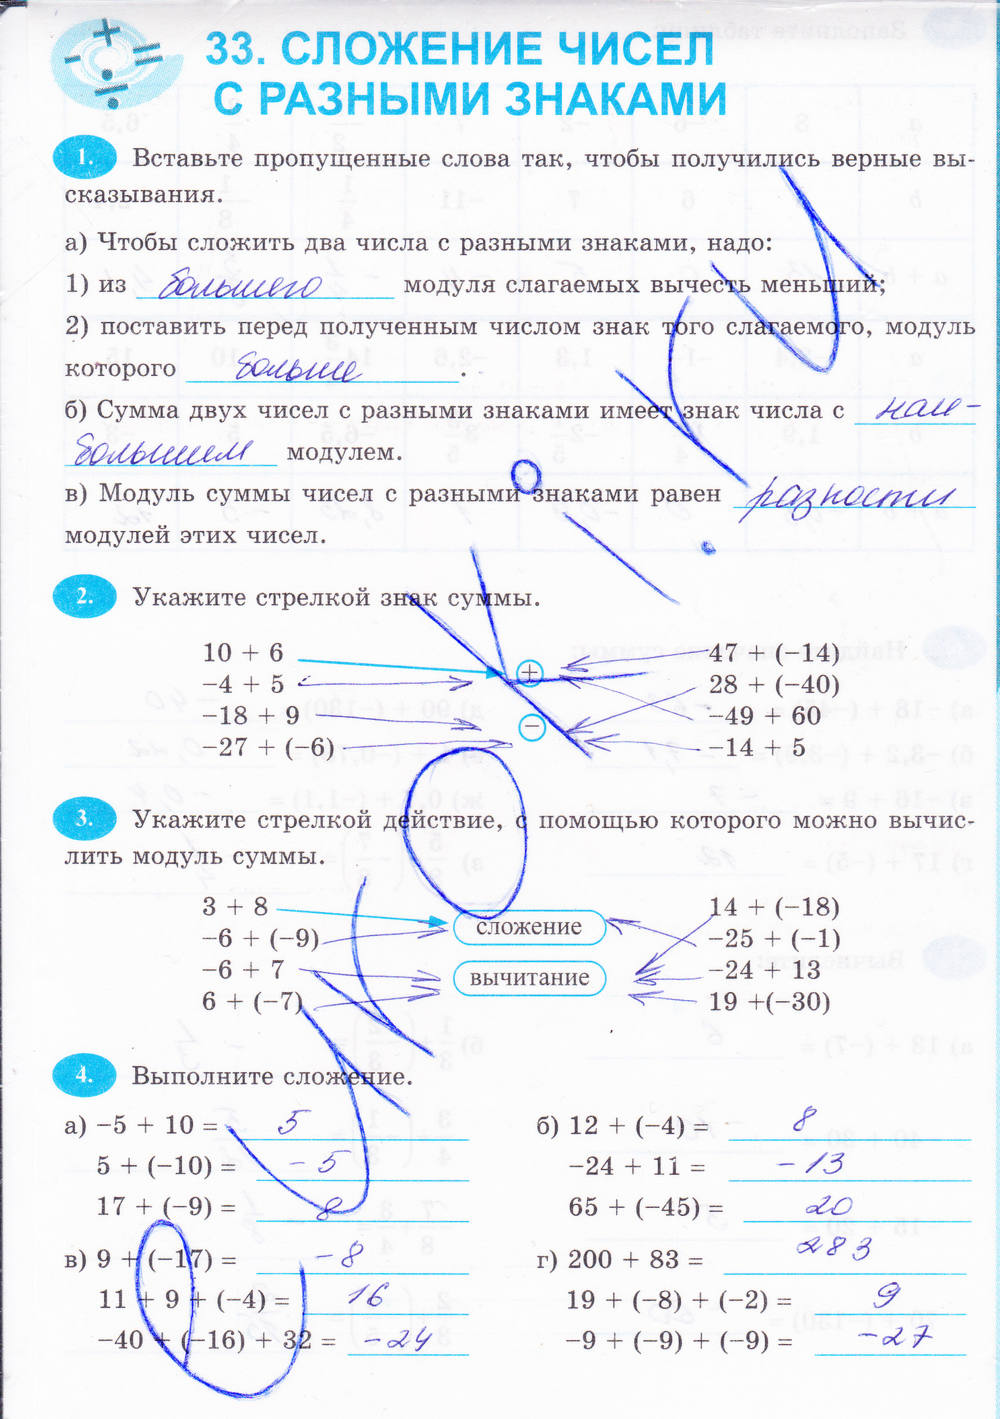 33. СЛОЖЕНИЕ ЧИСЕЛ
С РАЗНЫМИ ЗНАКАМИ
1. Вставьте пропущенные слова так, чтобы получились верные вы-
сказывания.
а) Чтобы сложить два числа с разными знаками, надо:
1) из большего модуля слагаемых вычесть меньший;
2) поставить перед полученным числом знак того слагаемого, модуль
которого больше.
б) Сумма двух чисел с разными знаками имеет знак числа с наи-
большим модулем.
в) Модуль суммы чисел с разными знаками равен разности
модулей этих чисел.
2. Укажите стрелкой знак суммы.
10 + 6 + 47 + (−14)
−4 + 5 28 + (−40)
−18 + 9 − −49 + 60
−27 + (−6) −14 + 5
3. Укажите стрелкой действие, с помощью которого можно вычис-
лить модуль суммы.
3 + 8 сложение 14 + (−18)
−6 + (−9) −25 + (−1)
−6 + 7 вычитание −24 + 13
6 + (−7) 19 +(−30)
4. Выполните сложение.
а) −5 + 10 = 5 б) 12 + (−4) = 8
5 + (−10) = −5 −24 + 11 = −13
17 + (−9) = 8 65 + (−45) = 20
в) 9 + (−17) = −8 г) 200 + 83 = 283
11 + 9 + (−4) = 16 19 + (−8) + (−2) = 9
−40 + (−16) + 32 = −24 −9 + (−9) + (−9) = −27